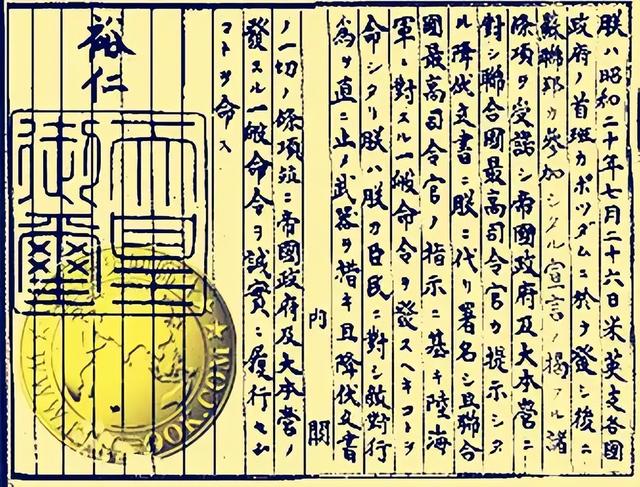 朕ハ昭和二十年七月二十六日米英支各國
政府ノ首班カポツダムニ於テ發シ後ニ
蘇聯邦カ參加シタル宣言ノ掲クル諸
條項ヲ受諾シ帝國政府及大本營ニ
對シ聯合國最高司令官カ提示シタ
ル降伏文書ニ朕ニ代リ署名シ且聯合
國最高司令官ノ指示ニ基キ陸海
軍ニ對スル一般命令ヲ發スヘキコトヲ
命シタリ朕ハ朕カ臣民ニ對シ敵對行
為ヲ直ニ止メ武器ヲ措キ且降伏文書
內閣
ノ一切ノ條項竝ニ帝國政府及大本營ノ
發スル一般命令ヲ誠實ニ履行セム
コトヲ命ス
裕仁
天皇
御璽